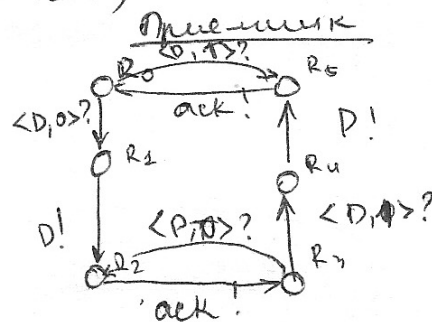 Приемник
<D, 1>?
R0
R5
ack!
<D, 0>?
D!
R1
R4
<D, 1>?
D!
<D, 0>?
R2
R3
ack!